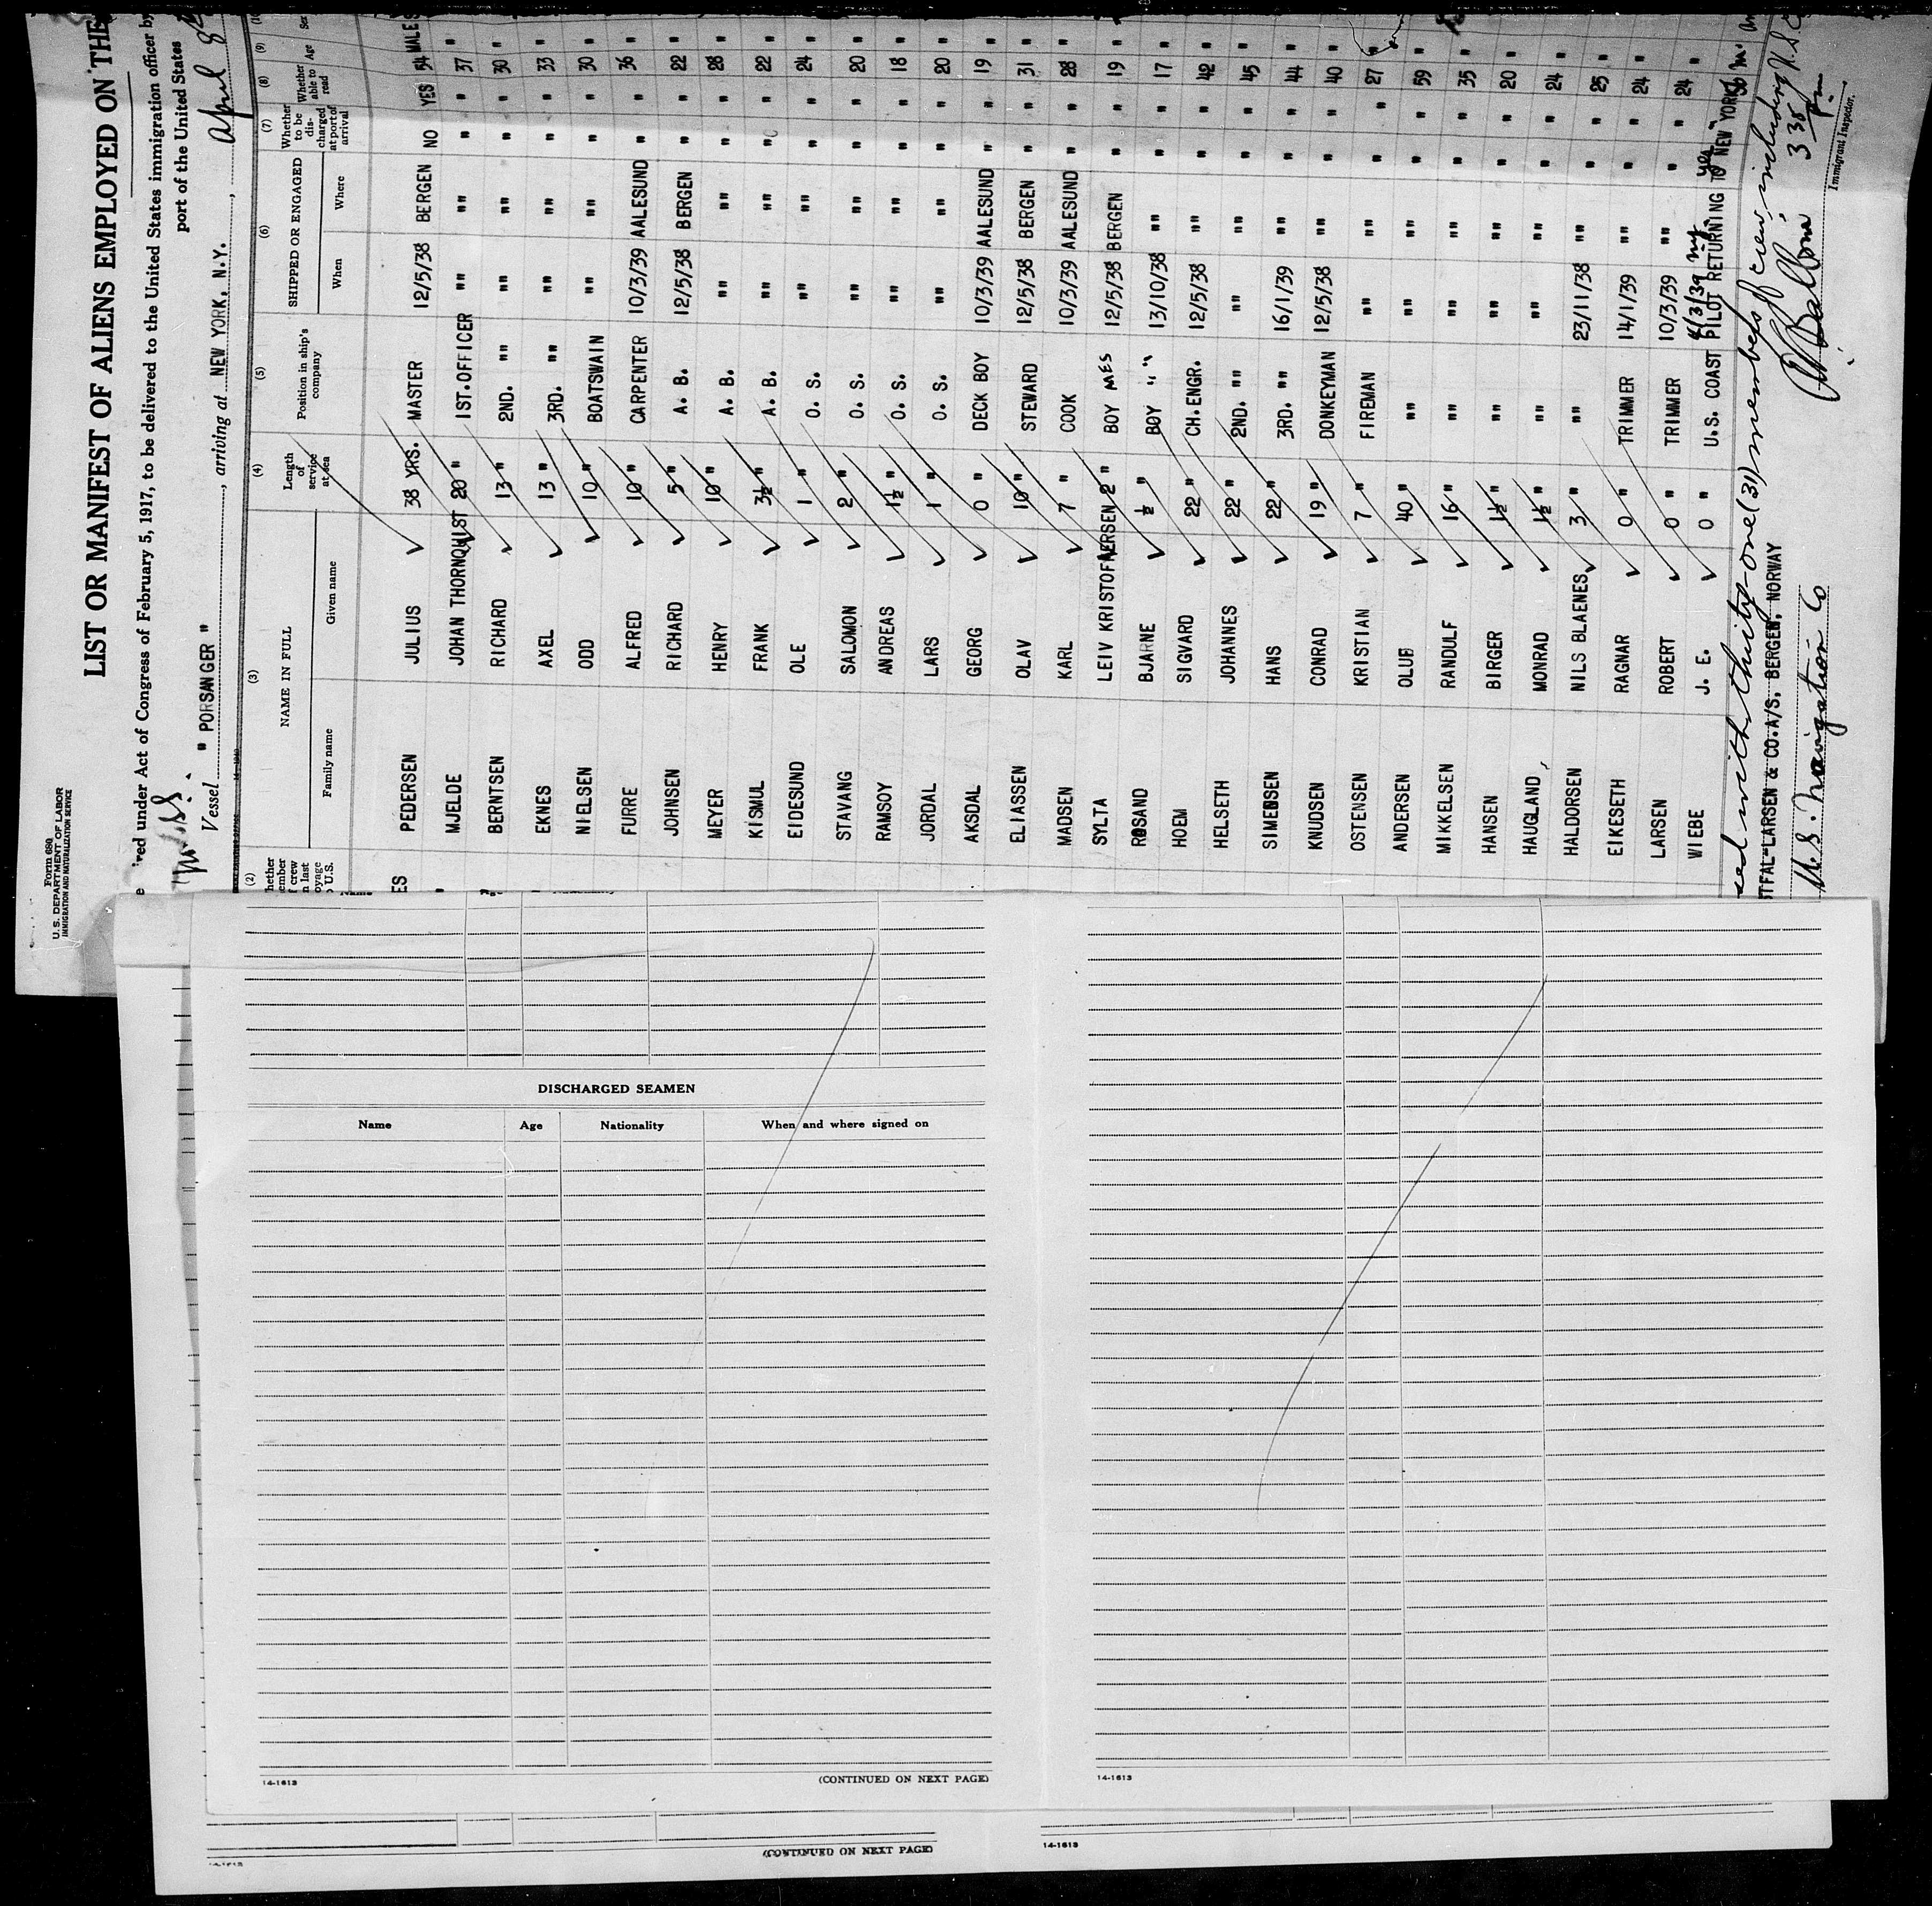 Form 680
U.S. DEPARTMENT OF LABOR
IMMIGRATION AND NATURALIZATION SERVICE
LIST OR MANIFEST OF ALIENS EMPLOYED ON THE
red under Act of Congress of February 5, 1917, to be delivered to the United States immigration officer by
port of the United States
Vessel " PORSANGER " , arriving at NEW YORK, N.Y. , April 8
(2) (3) (4) (5) (6) (7) (8) (9)
NAME IN FULL Length of service at sea Position in ship's company SHIPPED OR ENGAGED Whether to be discharged at port of arrival Whether able to read Age Sex
Family name Given name When Where
PEDERSEN JULIUS 38 YRS. MASTER 12/5/38 BERGEN NO YES 54 MALE
MJELDE JOHAN THORNQWIST 20 " 1ST.OFFICER "" "" " " 37 "
BERNTSEN RICHARD 13 " 2ND. "" "" "" " " 30 "
EKNES AXEL 13 " 3RD. "" "" "" " " 33 "
NIELSEN ODD 10 " BOATSWAIN "" "" " " 30 "
FURRE ALFRED 10 " CARPENTER 10/3/39 AALESUND " " 36 "
JOHNSEN RICHARD 5 " A. B. 12/5/38 BERGEN " " 22 "
MEYER HENRY 10 " A. B. "" "" " " 28 "
KISMUL FRANK 3½ " A. B. "" "" " " 22 "
EIDESUND OLE 1 " O. S. "" "" " " 24 "
STAVANG SALOMON 2 " O. S. "" "" " " 20 "
RAMSOY ANDREAS 1½ " O. S. "" "" " " 18 "
JORDAL LARS 1 " O. S. "" "" " " 20 "
AKSDAL GEORG 0 " DECK BOY 10/3/39 AALESUND " " 19 "
ELIASSEN OLAV 10 " STEWARD 12/5/38 BERGEN " " 31 "
MADSEN KARL 7 " COOK 10/3/39 AALESUND " " 28 "
SYLTA LEIV KRISTOFAERSEN 2 " BOY MES 12/5/38 BERGEN " " 19 "
ROSAND BJARNE ½ " BOY "" 13/10/38 "" " " 17 "
HOEM SIGVARD 22 " CH.ENGR. 12/5/38 "" " " 42 "
HELSETH JOHANNES 22 " 2ND. "" "" "" " " 45 "
SIMENSEN HANS 22 " 3RD. "" 16/1/39 "" " " 44 "
KNUDSEN CONRAD 19 " DONKEYMAN 12/5/38 "" " " 40 "
OSTENSEN KRISTIAN 7 " FIREMAN "" "" " " 27 "
ANDERSEN OLUF 40 " "" "" "" " " 59 "
MIKKELSEN RANDULF 16 " "" "" "" " " 35 "
HANSEN BIRGER 1½ " "" "" "" " " 20 "
HAUGLAND, MONRAD 1½ " "" "" "" " " 24 "
HALDORSEN NILS BLAENES 3 " "" 23/11/38 "" " " 25 "
EIKESETH RAGNAR 0 " TRIMMER 14/1/39 "" " " 24 "
LARSEN ROBERT 0 " TRIMMER 10/3/39 "" " " 24 "
WIEBE J. E. 0 " U.S. COAST PILOT RETURNING TO NEW YORK
with thirty-one (31) members of crew, including U.S.C.
STFAL-LARSEN & CO.A/S, BERGEN, NORWAY
3 35 Pm
U.S. Navigation Co
Immigrant Inspector.
DISCHARGED SEAMEN
Name Age Nationality When and where signed on
14-1613 (CONTINUED ON NEXT PAGE) 14-1613
(CONTINUED ON NEXT PAGE) 14-1613